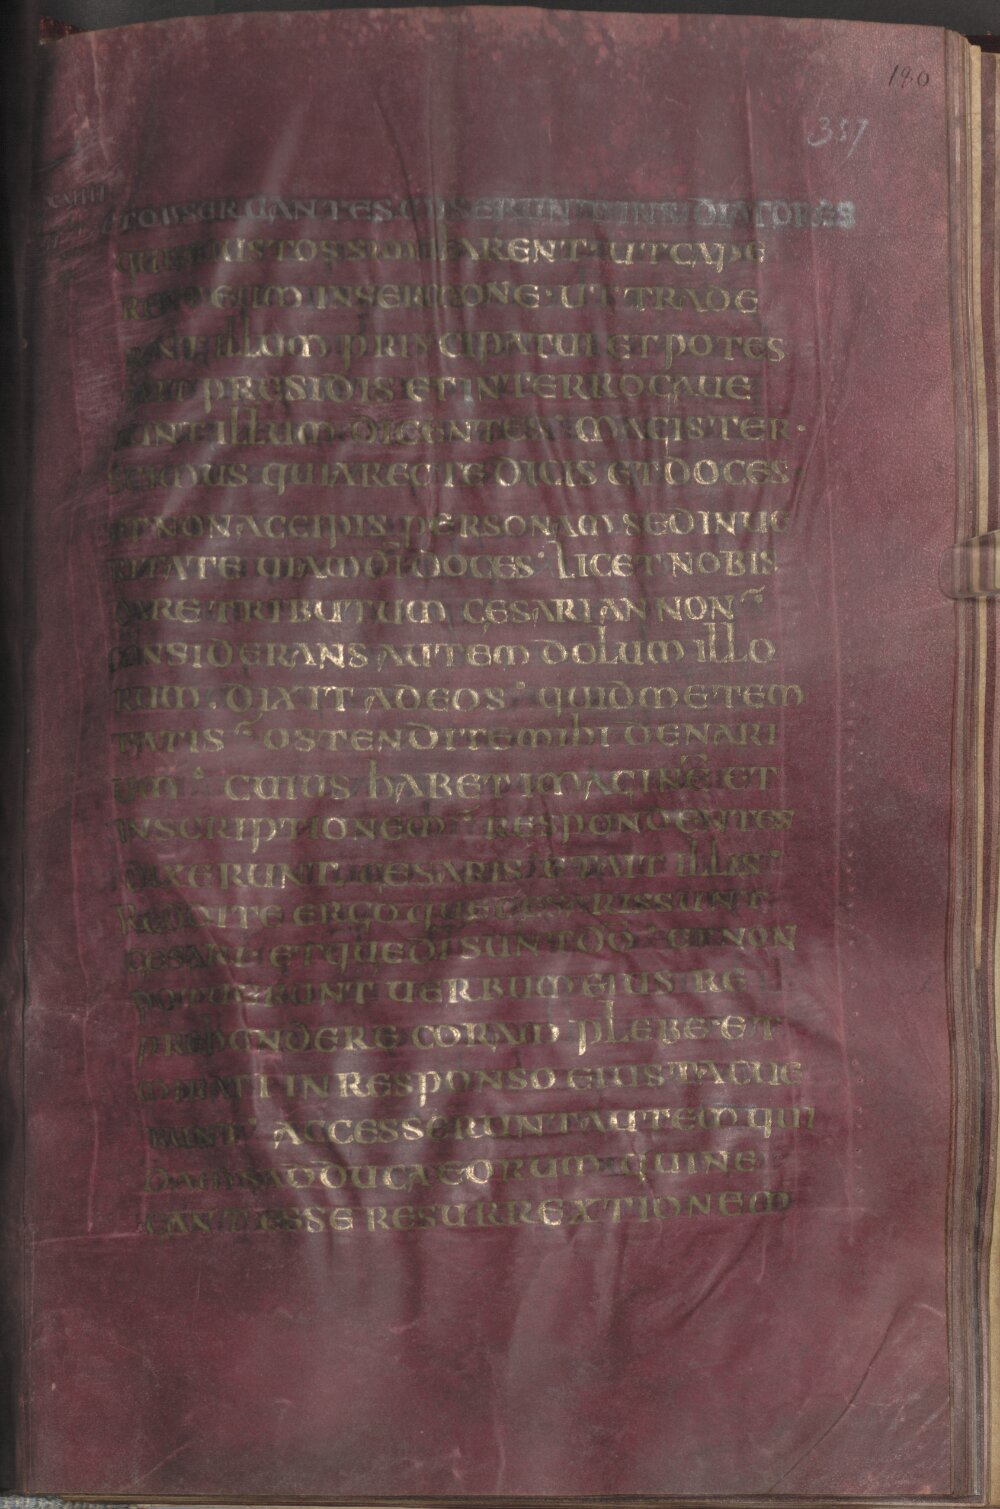 180
357
ETOBSERUANTES MISERUNT INSIDIATORES
QUI SE IUSTOS SIMULARENT· UT CAPE
RENT EUM IN SERMONE· UT TRADE
RENT ILLUM PRINCIPATUI ET POTES
TATI PRESIDIS ET INTERROGAUE
RUNT ILLUM DICENTES· MAGISTER·
SCIMUS QUIA RECTE DICIS ET DOCES·
ET NON ACCIPIS PERSONAM SED IN UE
RITATE UIAM DI DOCES· LICET NOBIS
DARE TRIBUTUM CESARI AN NON
CONSIDERANS AUTEM DOLUM ILLO
RUM· DIXIT AD EOS· QUID ME TEM
TATIS OSTENDITE MIHI DENARI
UM· CUIUS HABET IMAGINĒ ET
INSCRIPTIONEM RESPONDENTES
DIXERUNT CESARIS ET AIT ILLIS·
REDDITE ERGO QUE CESARIS SUNT
CESARI· ET QUE DI SUNT DO· ET NON
POTUERUNT UERBUM EIUS RE
PREHENDERE CORAM PLEBE· ET
MIRATI IN RESPONSO EIUS TACUE
RUNT· ACCESSERUNT AUTEM QUI
DAM SADDUCAEORUM QUI NE
GANT ESSE RESURREXTIONEM